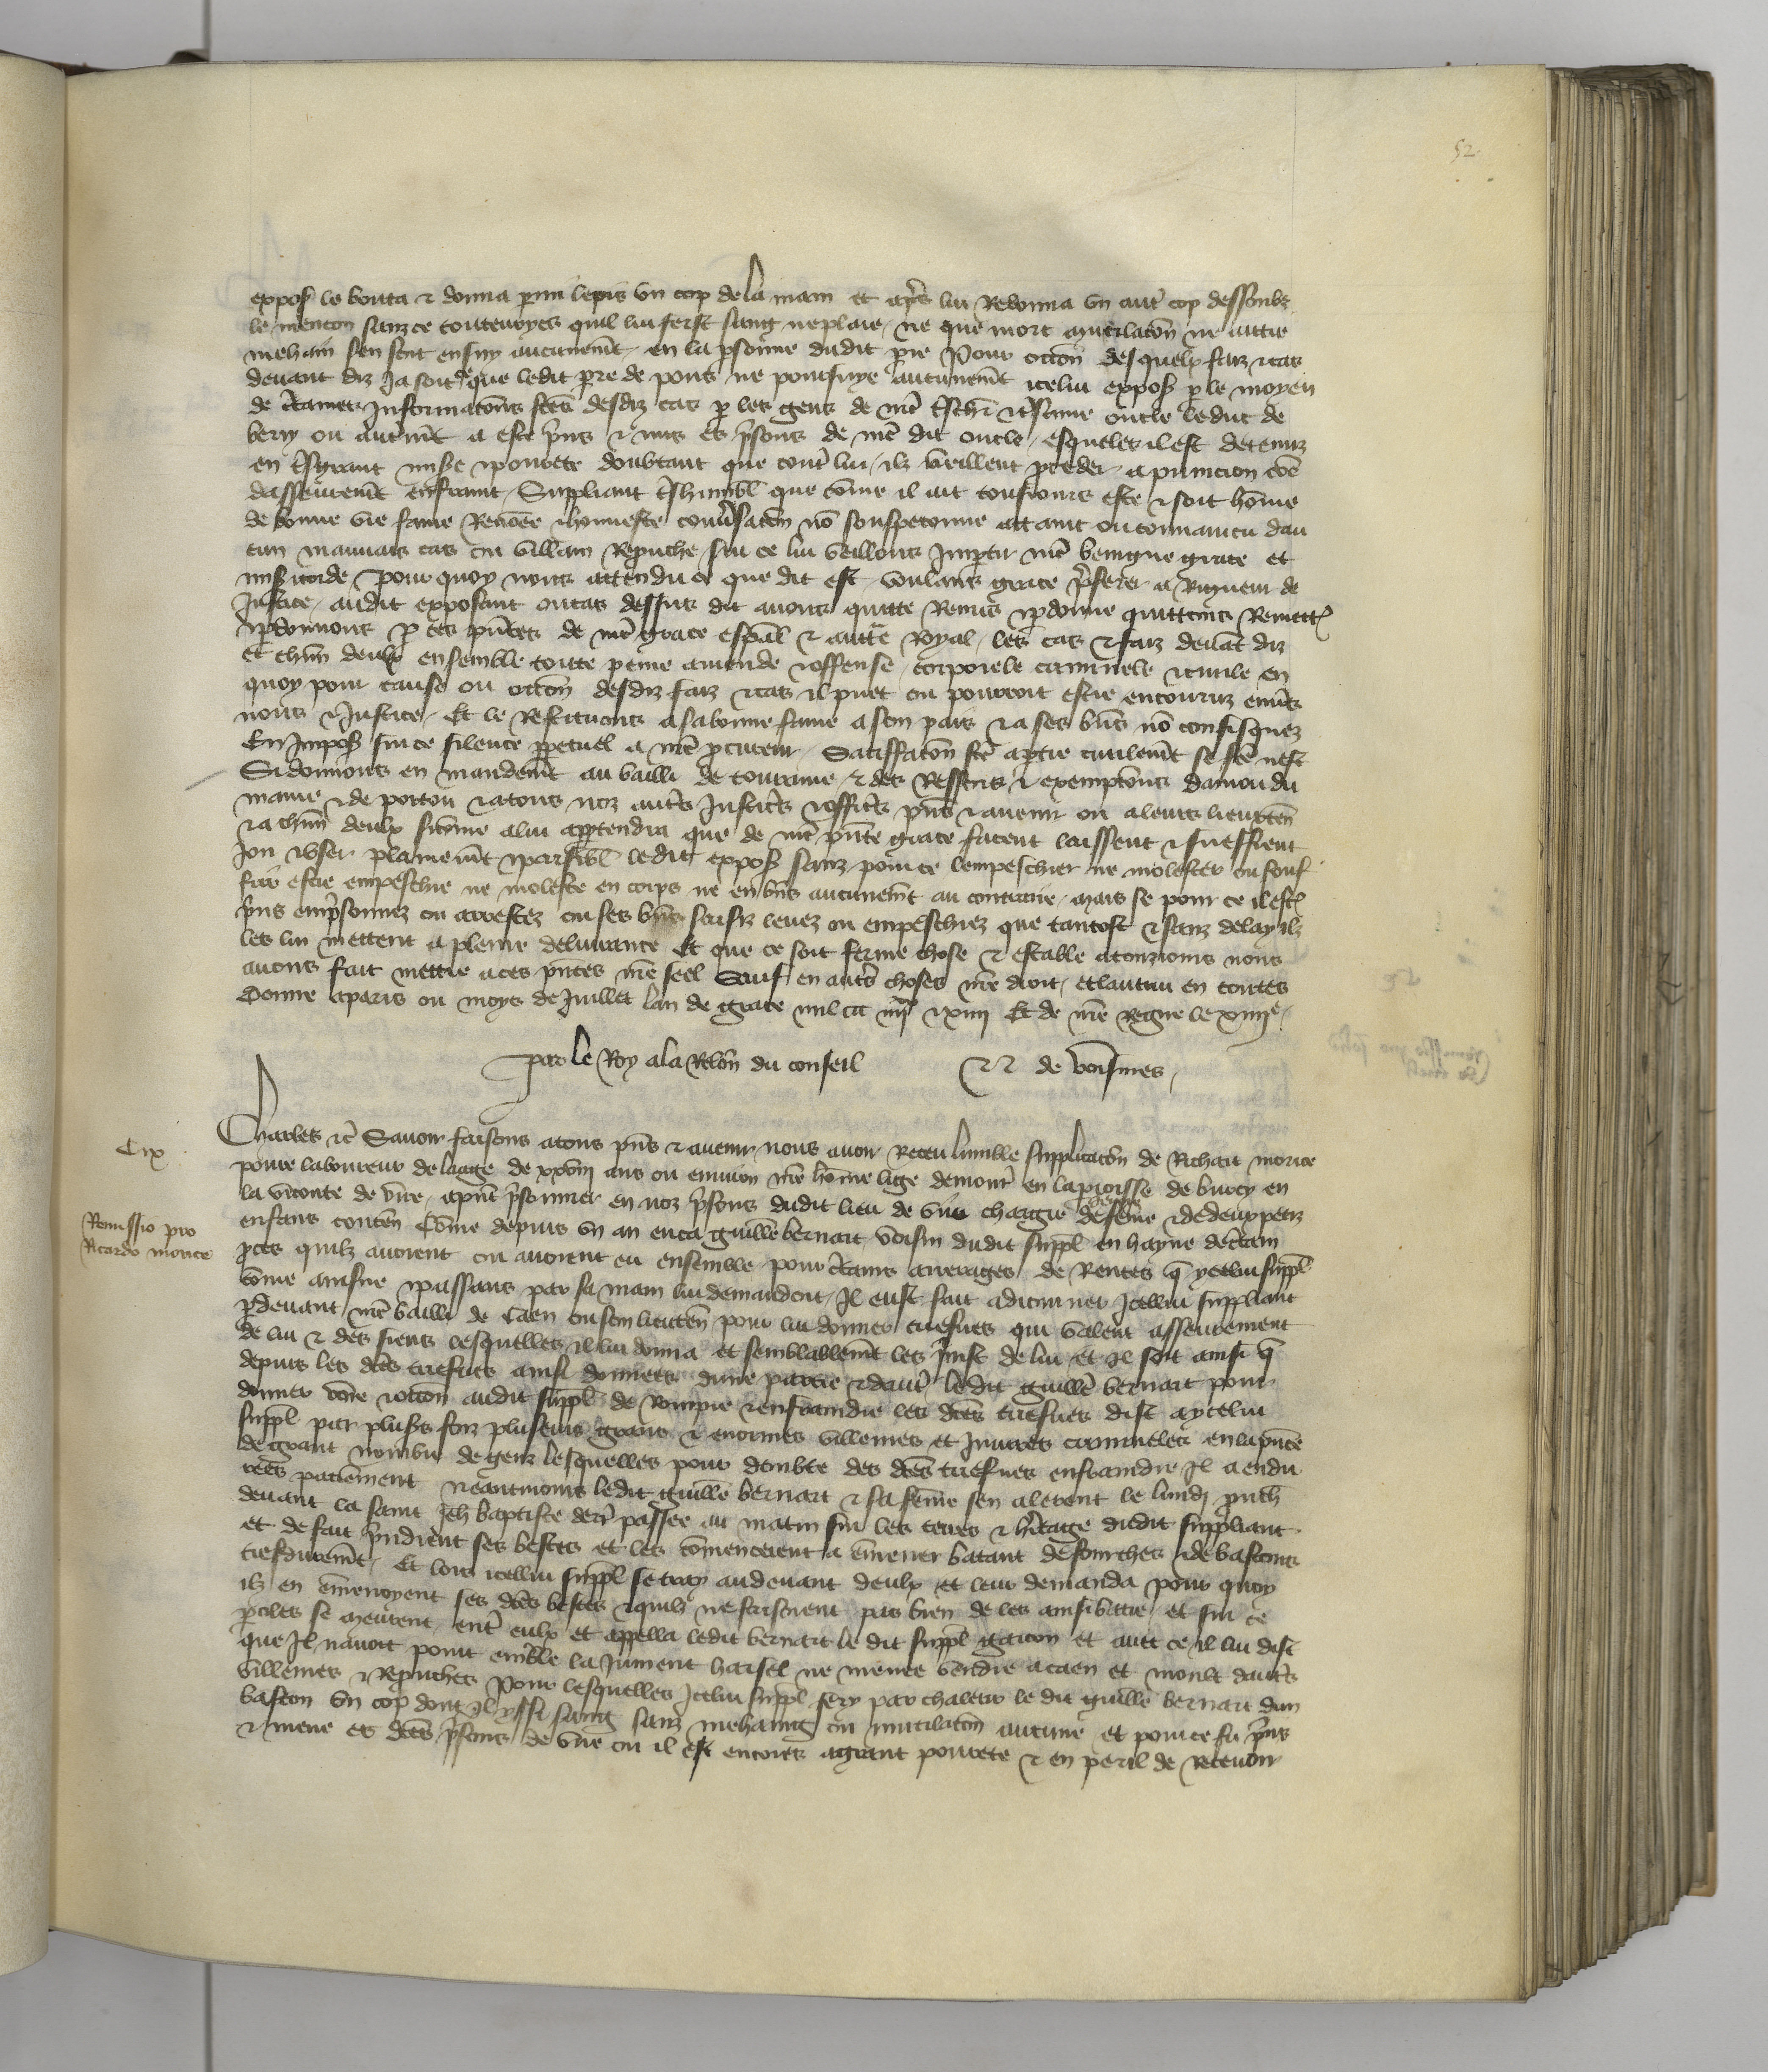 52
expos le bouta & donna parmi le pis un cop de la main et apres lui redonna un autre cop dessoubz
le menton sanz ce toutevoyes quil lui feist sang ne plaie, ne que mort mutilacon ne autre
mehain sen soit ensuy aucunement, en la psonne dudit pre Pour occon desquelx faiz & cas
devant diz Ja soit ce que ledit pre de pons ne poursuye aucunement icelui expos p le moyen
de ctaines Informacons fces desdiz cas p les gens de nre tschr & tsame oncle le duc de
berry ou autrement a este prins & mis es prisons de nre dit oncle, esqueles il est detenuz
en tsgrant misere & povrete doubtant que contre lui, ilz veillent proceder a punicion coe
dasseurement enfraint, Suppliant tshumbl que come il ait tousiours este & soit home
de bonne vie fame Renomee & honneste conversacon no souspeconne attaint ou convaincu dau
cun mauvais cas ou villain Reprouche, sur ce lui veillons Impartir nre benigne grace et
misicorde Pour quoy nous attendu ce que dit est, voulans grace preferer a Rigueur de
Justice, audit exposant ou cas dessus dit avons quitte Remis & pdonne quittons Remett
& pdonnons p ces pntes de nre grace espal & aucte Royal, les cas & faiz devant diz
et chun deulx ensemble toute peine amende & offense, corporele criminele & civile en
quoy pour cause ou occon desdiz faiz & cas il puet ou pourroit estre encouruz envers
nous & Justice, Et le Restituons a sa bonne fame a son pais & a ses bns no confisquez
En Impos sur ce silence ppetuel a nre procureur, Satiffacon fce a ptie civilement se fce nest
Si donnons en mandement au bailli de touraine & des Ressors & exempcons damou du
maine & de poitou & a tous noz autres Justic & offic pns & avenir ou a leurs lieuxten
& a chun deulx si come a lui apptendra que de nre pnte grace facent laissent & sueffrent
Joir & user plainement & paisibl ledit expos sanz pour ce lempeschier ne molester ou souf
frir estre empeschie ne moleste en corps ne en bns aucunement au contraire, mais se pour ce il est
prins emprisonnez ou arrestez ou ses bns saisiz levez ou empeschiez que tantost & sanz delay ilz
les lui mettent a pleine delivrance Et que ce soit ferme chose & estable a tousiours nous
avons fait mettre a ces pntes nre seel Sauf en autres choses nre droit, et lautrui en toutes
Donne a paris ou moys de Juillet lan de grace mil ccc iiiixx & xiiii Et de nre Regne le xiiiie.
Par le Roy a la Relon du conseil de voisines,
Cix
Remissio pro
Ricardo morice
Charles &c Savoir faisons a tous pns & avenir nous avoir Receu lumble supplicacon de Richart morice
povre laboureur de laage de xxviii ans ou environ nre home lige demourant en la proisse de bucey en
la viconte de vire, a pnt prisonnier en noz prisons dudit lieu de vire chargie de feme & de deux petiz
enfans conten Come depuis un an enca guille bernart voisin dudit suppl en hayne de ctain
pces quilz avoient ou avoient eu ensemble pour ctains arrerages de Rentes q ycelui suppl
come ainsne & puissans par sa main lui demandoit, Il eust fait adiourner Icellui suppliant
p devant nre bailli de Caen ou son lieuten pour lui donner trefues qui valent asseurement
de lui & des siens lesquelles il lui donna et semblablement les prinst de lui, et Il soit ainsi q
depuis les dces trefues ainsi donnees dune partie & daut ledit guille bernart pour
donner voie & occon audit suppl de Rompre & enfraindre les dces trefues dist a ycelui
suppl par plusrs foiz plusieurs grans & enormes villenies et Iniures criminelez en la pnce
de grant nombre de genz lesquelles pour doubte des dces trefues enfraindre Il a endu
rees paciement neantmoins ledit guille bernart & sa feme sen alerent le lundi prouch
devant la saint Jeh baptiste derr passee au matin sur les terres & heritage dudit suppliant
et de fait prindrent ses bestes et les comencerent a emener batant de fourches & de bastons
tresdurement, Et lors icellui suppl se tray au devant deulx et leur demanda pour quoy
ilz en emenoyent ses dces bestes & quilz ne faisoient pas bien de les ainsi batre, et sur ce
proles se meurent entre eulx et appella ledit bernart le dit suppl garcon et avec ce il lui dist
que Il navoit point emble la Jument harsel ne menee vendre a caen et moult dautres
villenies & Reprouches Pour lesquelles Icelui suppl fery par chaleur le dit guille bernart dun
baston un cop dont Il yssi sang sanz mehaing ou mutilacon aucune et pour ce fu prins
& mene es dces prisons de vire ou il est encores a grant povrete & en peril de Recevoir